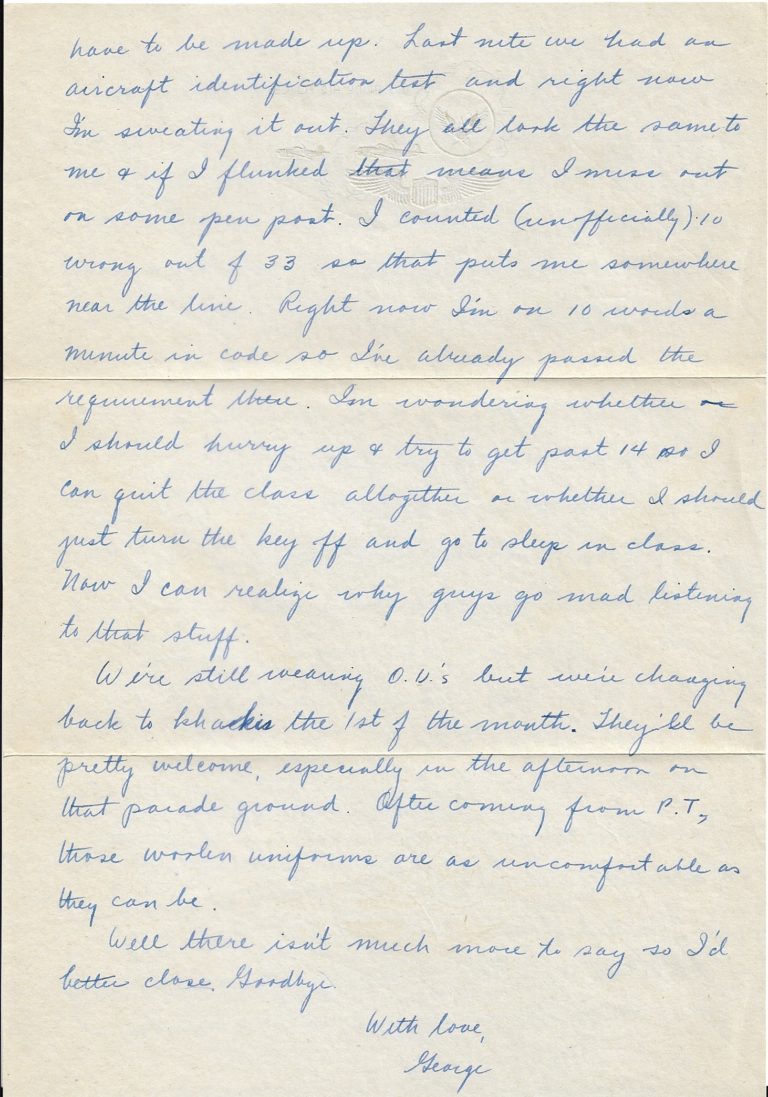 have to be made up. Last nite we had an
aircraft identification test and right now
I'm sweating it out. They all look the same to
me & if I flunked that means I miss out
on some pen post. I counted (unofficially) 10
wrong out of 33 so that puts me somewhere
near the line. Right now I'm on 10 words a
minute in code so I've already passed the
requirement there. I'm wondering whether or
I should hurry up & try to get past 14 so I
can quit the class altogether or whether I should
just turn the key off and go to sleep in class.
Now I can realize why guys go mad listening
to that stuff.
We're still wearing O.D.'s but we're changing
back to khakis the 1st of the month. They'll be
pretty welcome, especially in the afternoon on
that parade ground. After coming from P.T.,
those woolen uniforms are as uncomfortable as
they can be.
Well there isn't much more to say so I'd
better close. Goodbye.
With love,
George